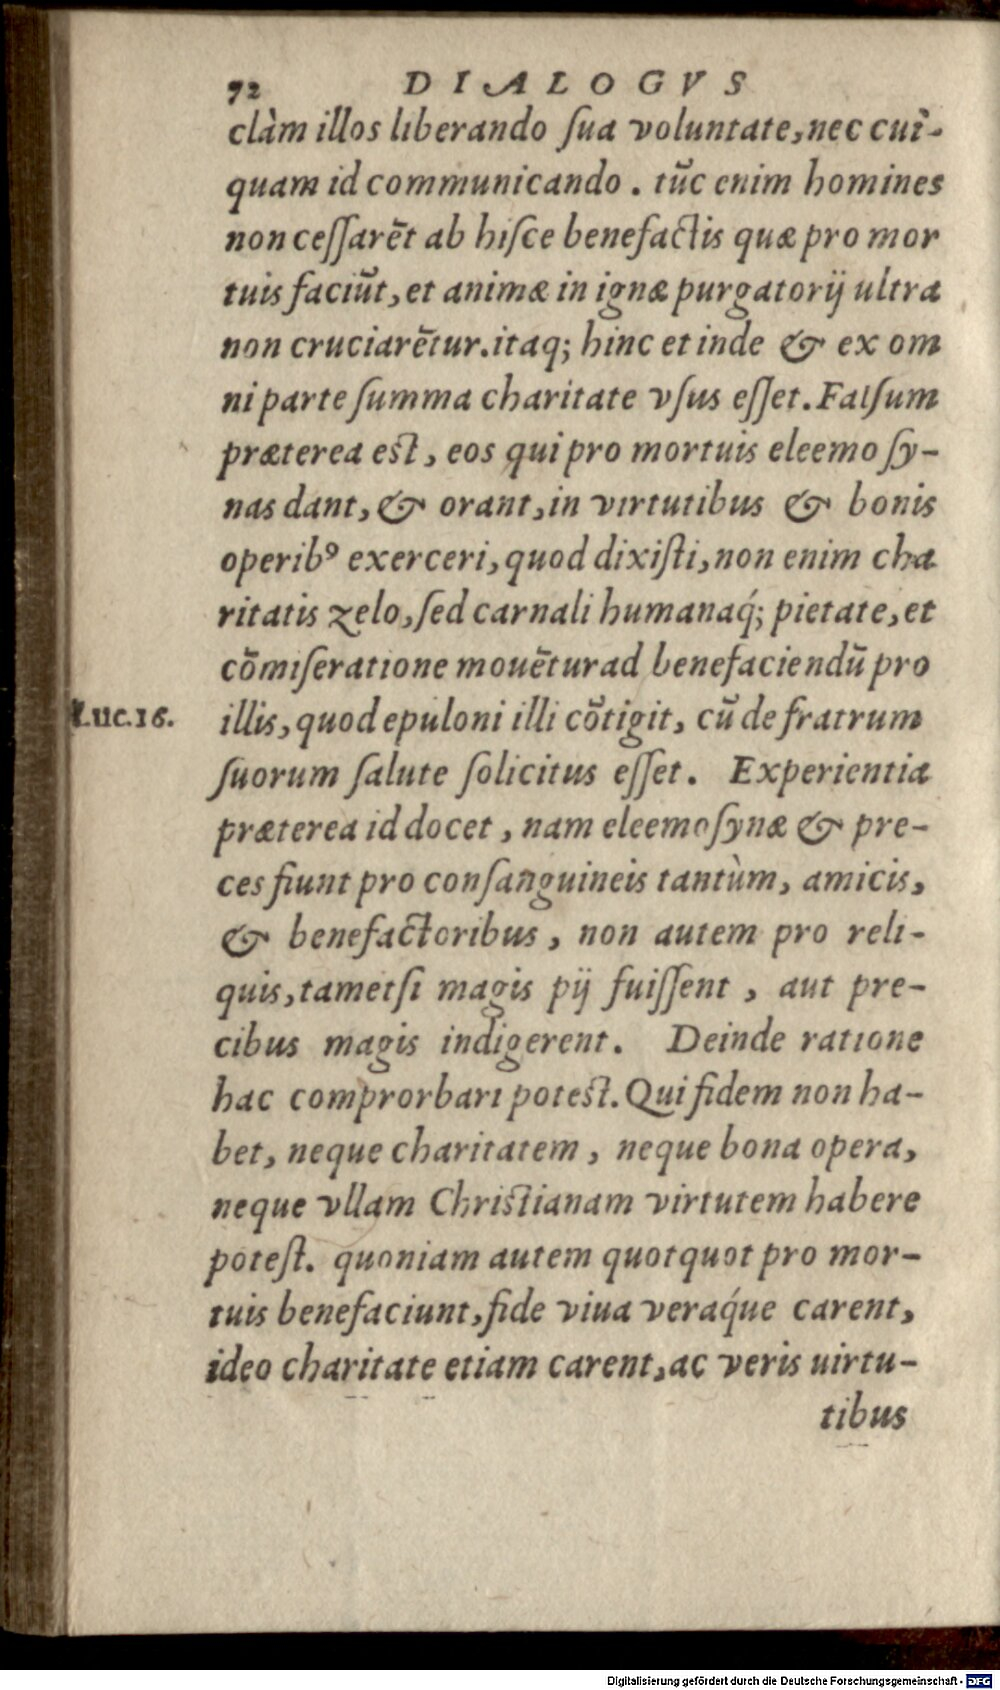 72 DIALOGVS
clàm illos liberando ſua voluntate, nec cuì-
quam id communicando. tūc enim homines
non ceſſarēt ab hiſce benefactis quæ pro mor
tuis faciūt, et animæ in ignæ purgatorij ultra
non cruciarētur. itaq; hinc et inde & ex om
ni parte ſumma charitate vſus eſſet. Falſum
præterea est, eos qui pro mortuis eleemoſy-
nas dant, & orant, in virtutibus & bonis
operibꝰ exerceri, quod dixiſti, non enim cha
ritatis zelo, ſed carnali humanaq́; pietate, et
cōmiſeratione mouētur ad benefaciendū pro
Luc. 16. illis, quod epuloni illi cōtigit, cū de fratrum
ſuorum ſalute ſolicitus eſſet. Experientia
præterea id docet, nam eleemoſynæ & pre-
ces fiunt pro conſanguineis tantùm, amicis,
& benefactoribus, non autem pro reli-
quis, tametſi magis pij fuiſſent, aut pre-
cibus magis indigerent. Deinde ratione
hac comprorbari potest. Qui fidem non ha-
bet, neque charitatem, neque bona opera,
neque vllam Christianam virtutem habere
poteſt. quoniam autem quotquot pro mor-
tuis benefaciunt, fide viua veraq́ue carent,
ideo charitate etiam carent, ac veris uirtu-
tibus
Digitalisierung gefördert durch die Deutsche Forschungsgemeinschaft - DFG